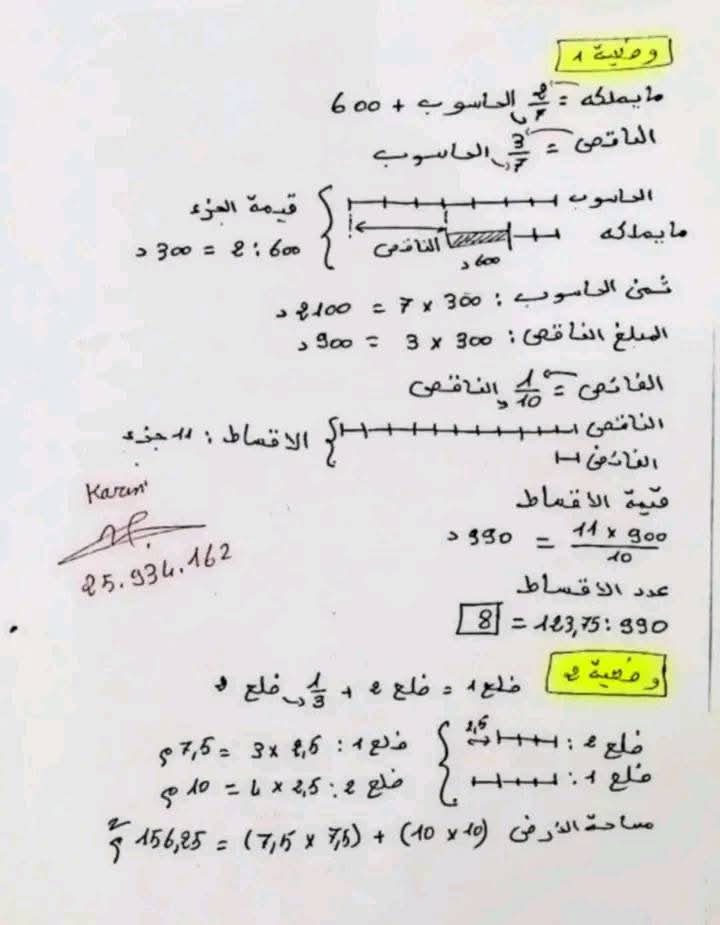 وضعية 1
ما يملكه = 2/7 الحاسوب + 600
الناقص = 3/7 الحاسوب
الحاسوب
ما يملكه
الناقص
600 د
قيمة الجزء
600 : 2 = 300 د
ثمن الحاسوب : 300 × 7 = 2100 د
المبلغ الناقص : 300 × 3 = 900 د
الفائض = 1/10 الناقص
الناقص
الفائض
الاقساط : 11 جزء
قيمة الاقساط
11 × 900 / 10 = 990 د
Karim
25.934.162
عدد الاقساط
990 : 123,75 = 8
وضعية 2
ضلع 1 = ضلع 2 + 1/3 ضلع
ضلع 2 :
2,5
ضلع 1 :
ضلع 1 : 2,5 × 3 = 7,5 م
ضلع 2 : 2,5 × 4 = 10 م
مساحة الأرض (10 × 10) + (7,5 × 7,5) = 156,25 م²